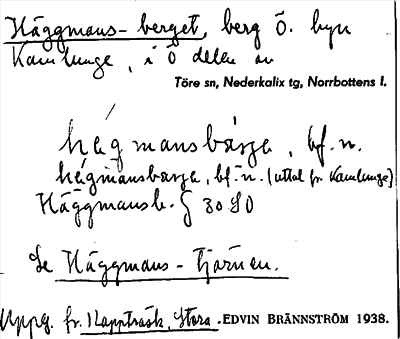 Häggmans-berget, berg Ö. byn
Kamlunge, i Ö delen av
Töre sn, Nederkalix tg, Norrbottens l.
hägmansbärje, bf. n.
hägmansbarja, bf. n. (uttal fr. Kamlunge)
Häggmansb. § 30 SO
Se Häggmans-tjärnen.
Uppg. fr. Rappträsk, Stora. EDVIN BRÄNNSTRÖM 1938.